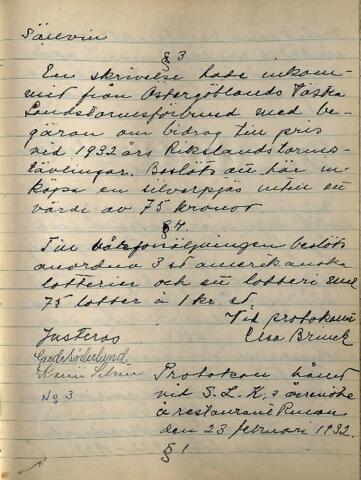 § 3
En skrivelse hade inkom-
mit från Östergötlands Västra
Landstormsförbund med be-
gäran om bidrag till pris
vid 1932 års Rikslandstorms-
tävlingar. Beslöts att här in-
köpa en silverpjäs intill ett
värde av 75 kronor.
§ 4.
Till vårförsäljningen beslöts
anordna 3 st amerikanska
lotterier och ett lotteri med
75 lotter à 1 kr. st.
Vid protokollet
Justeras
No 3
Protokoll hållet
vid S.L.K:s årsmöte
å restaurant
den 23 februari 1932.
§ 1